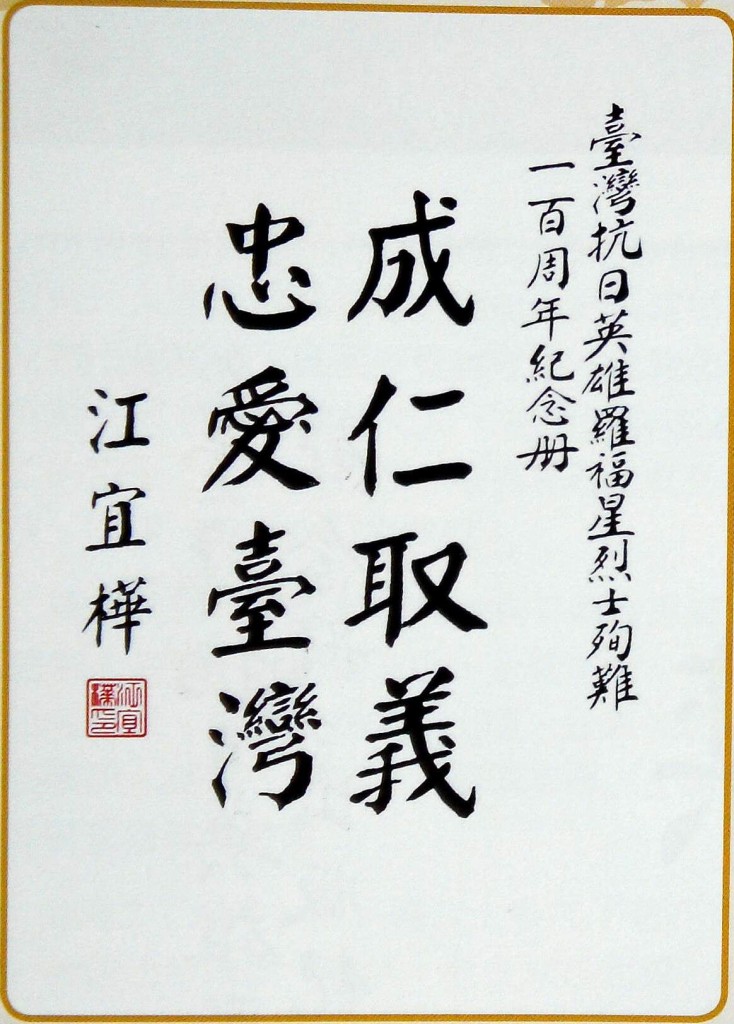 臺灣抗日英雄羅福星烈士殉難
一百周年紀念册
成仁取義
忠愛臺灣
江宜樺
江宜樺印